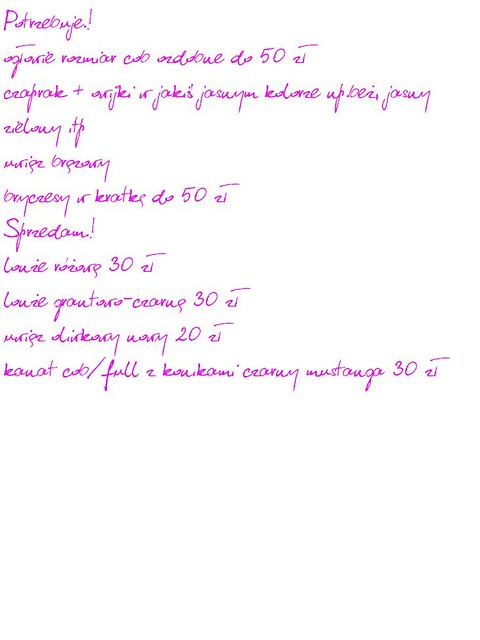 Potrzebuje!
ogłowie rozmiar cob ozdobne do 50 zł
czaprak + owijki w jakiś jasnym kolorze np.beż, jasny
zielony itp
uwiąz brązowy
bryczesy w kratkę do 50 zł
Sprzedam!
lonże różową 30 zł
lonże grantowo-czarną 30 zł
uwiąz dinkowy nowy 20 zł
kanat cob/full z konikami czarny mustanga 30 zł